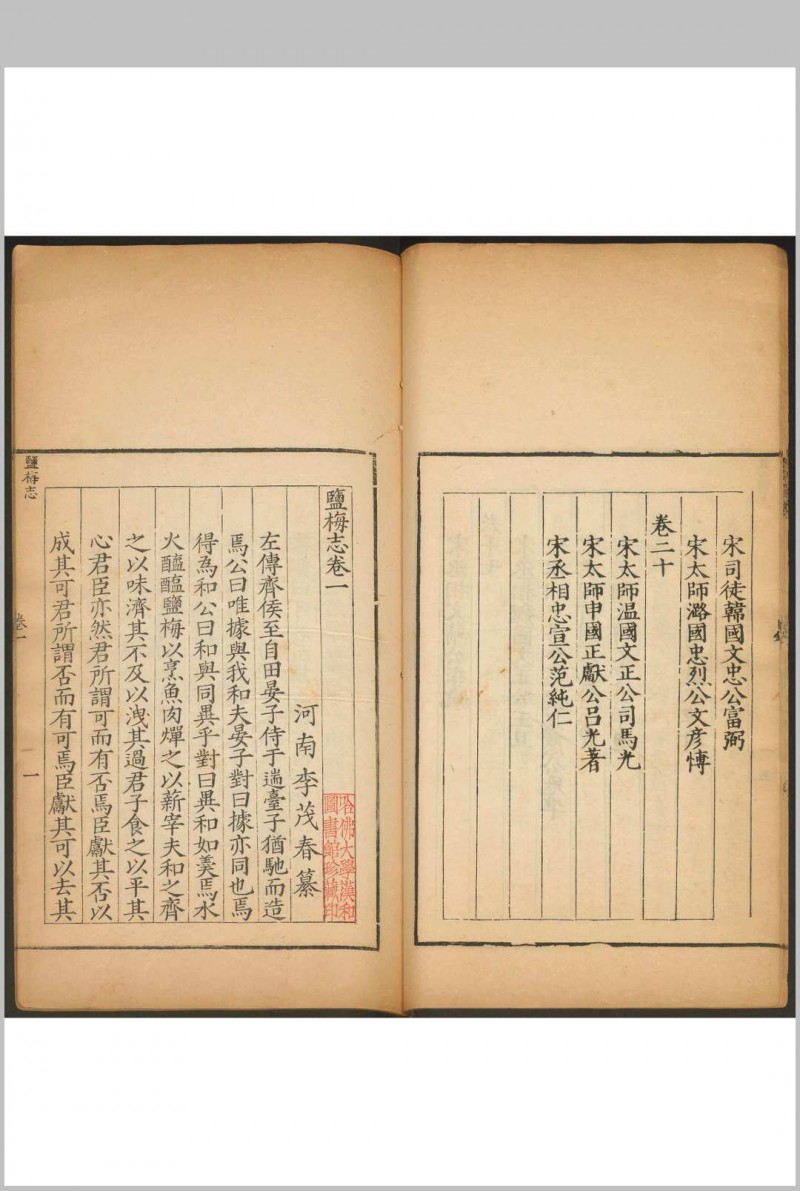 宋司徒韓國文忠公富弼
宋太師潞國忠烈公文彥博
卷二十
宋太師溫國文正公司馬光
宋太師申國正獻公呂光著
宋丞相忠宣公范純仁
鹽梅志卷一
河南李茂春纂
左傳齊侯至自田晏子侍于遄臺子猶馳而造
焉公曰唯據與我和夫晏子對曰據亦同也焉
得為和公曰和與同異乎對曰異和如羹焉水
火醯醢鹽梅以烹魚肉燀之以薪宰夫和之齊
之以味濟其不及以洩其過君子食之以平其
心君臣亦然君所謂可而有否焉臣獻其否以
成其可君所謂否而有可焉臣獻其可以去其
鹽梅志
卷一
一
哈佛大學漢和
圖書館珍藏印